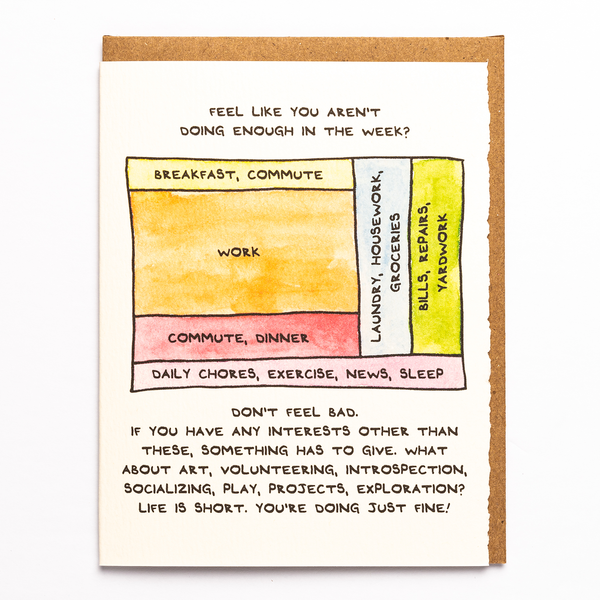 FEEL LIKE YOU AREN'T
DOING ENOUGH IN THE WEEK?
BREAKFAST, COMMUTE
WORK
COMMUTE, DINNER
LAUNDRY, HOUSEWORK,
GROCERIES
BILLS, REPAIRS,
YARDWORK
DAILY CHORES, EXERCISE, NEWS, SLEEP
DON'T FEEL BAD.
IF YOU HAVE ANY INTERESTS OTHER THAN
THESE, SOMETHING HAS TO GIVE. WHAT
ABOUT ART, VOLUNTEERING, INTROSPECTION,
SOCIALIZING, PLAY, PROJECTS, EXPLORATION?
LIFE IS SHORT. YOU'RE DOING JUST FINE!